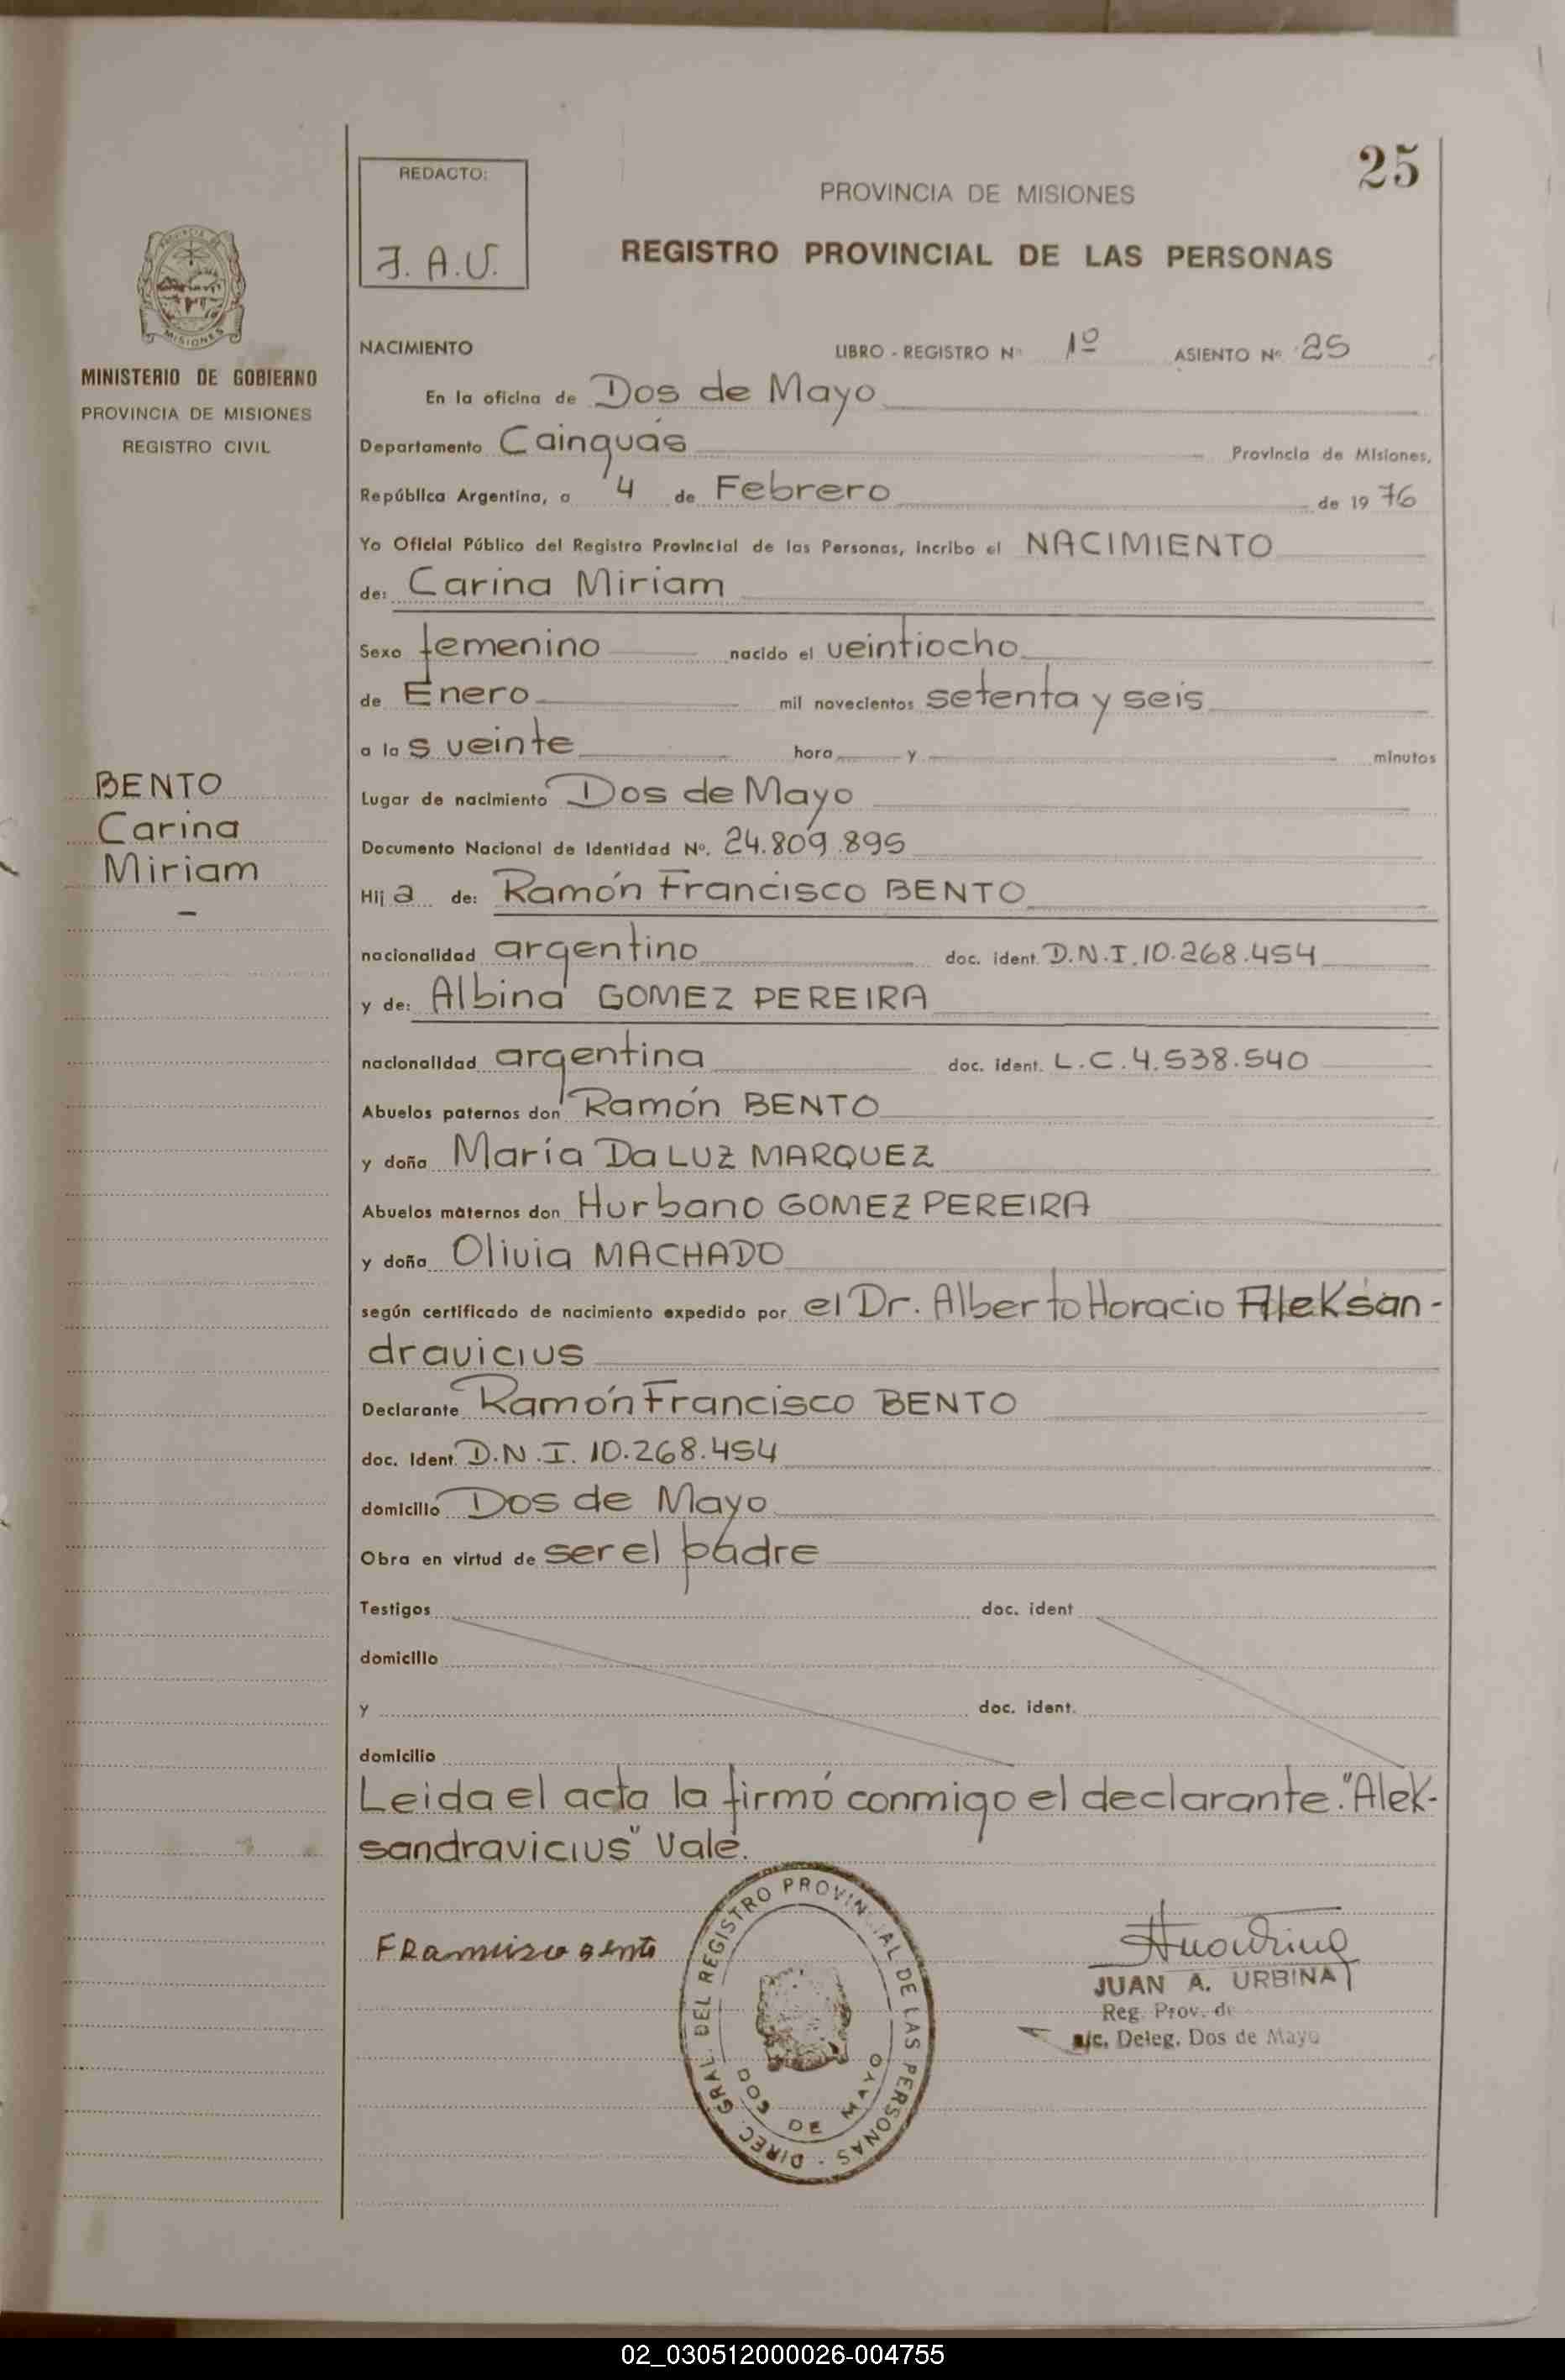 25
REDACTO:
J. A. U.
PROVINCIA DE MISIONES
REGISTRO PROVINCIAL DE LAS PERSONAS
MISIONES
MINISTERIO DE GOBIERNO
PROVINCIA DE MISIONES
REGISTRO CIVIL
BENTO
Carina
Miriam
NACIMIENTO LIBRO - REGISTRO Nº 1º ASIENTO Nº 25
En la oficina de Dos de Mayo
Departamento Cainguás Provincia de Misiones,
República Argentina, a 4 de Febrero de 1976
Yo Oficial Público del Registro Provincial de las Personas, incribo el NACIMIENTO
de: Carina Miriam
Sexo femenino nacido el veintiocho
de Enero mil novecientos setenta y seis
a las veinte hora y minutos
Lugar de nacimiento Dos de Mayo
Documento Nacional de Identidad Nº. 24.809.895
Hija de: Ramón Francisco BENTO
nacionalidad argentino doc. ident. D.N.I. 10.268.454
y de: Albina GOMEZ PEREIRA
nacionalidad argentina doc. ident. L.C. 4.538.540
Abuelos paternos don Ramón BENTO
y doña María Da LUZ MARQUEZ
Abuelos maternos don Hurbano GOMEZ PEREIRA
y doña Olivia MACHADO
según certificado de nacimiento expedido por el Dr. Alberto Horacio Aleksan-
dravicius
Declarante Ramón Francisco BENTO
doc. Ident. D.N.I. 10.268.454
domicilio Dos de Mayo
Obra en virtud de ser el padre
Testigos doc. ident
domicilio
y doc. ident.
domicilio
Leida el acta la firmó conmigo el declarante. "Alek-
sandravicius" Vale.
Francisco Bento
DIREC. GRAL. DEL REGISTRO PROVINCIAL DE LAS PERSONAS
DOS DE MAYO
JUAN A. URBINA
Reg. Prov. de
a/c. Deleg. Dos de Mayo
02_030512000026-004755